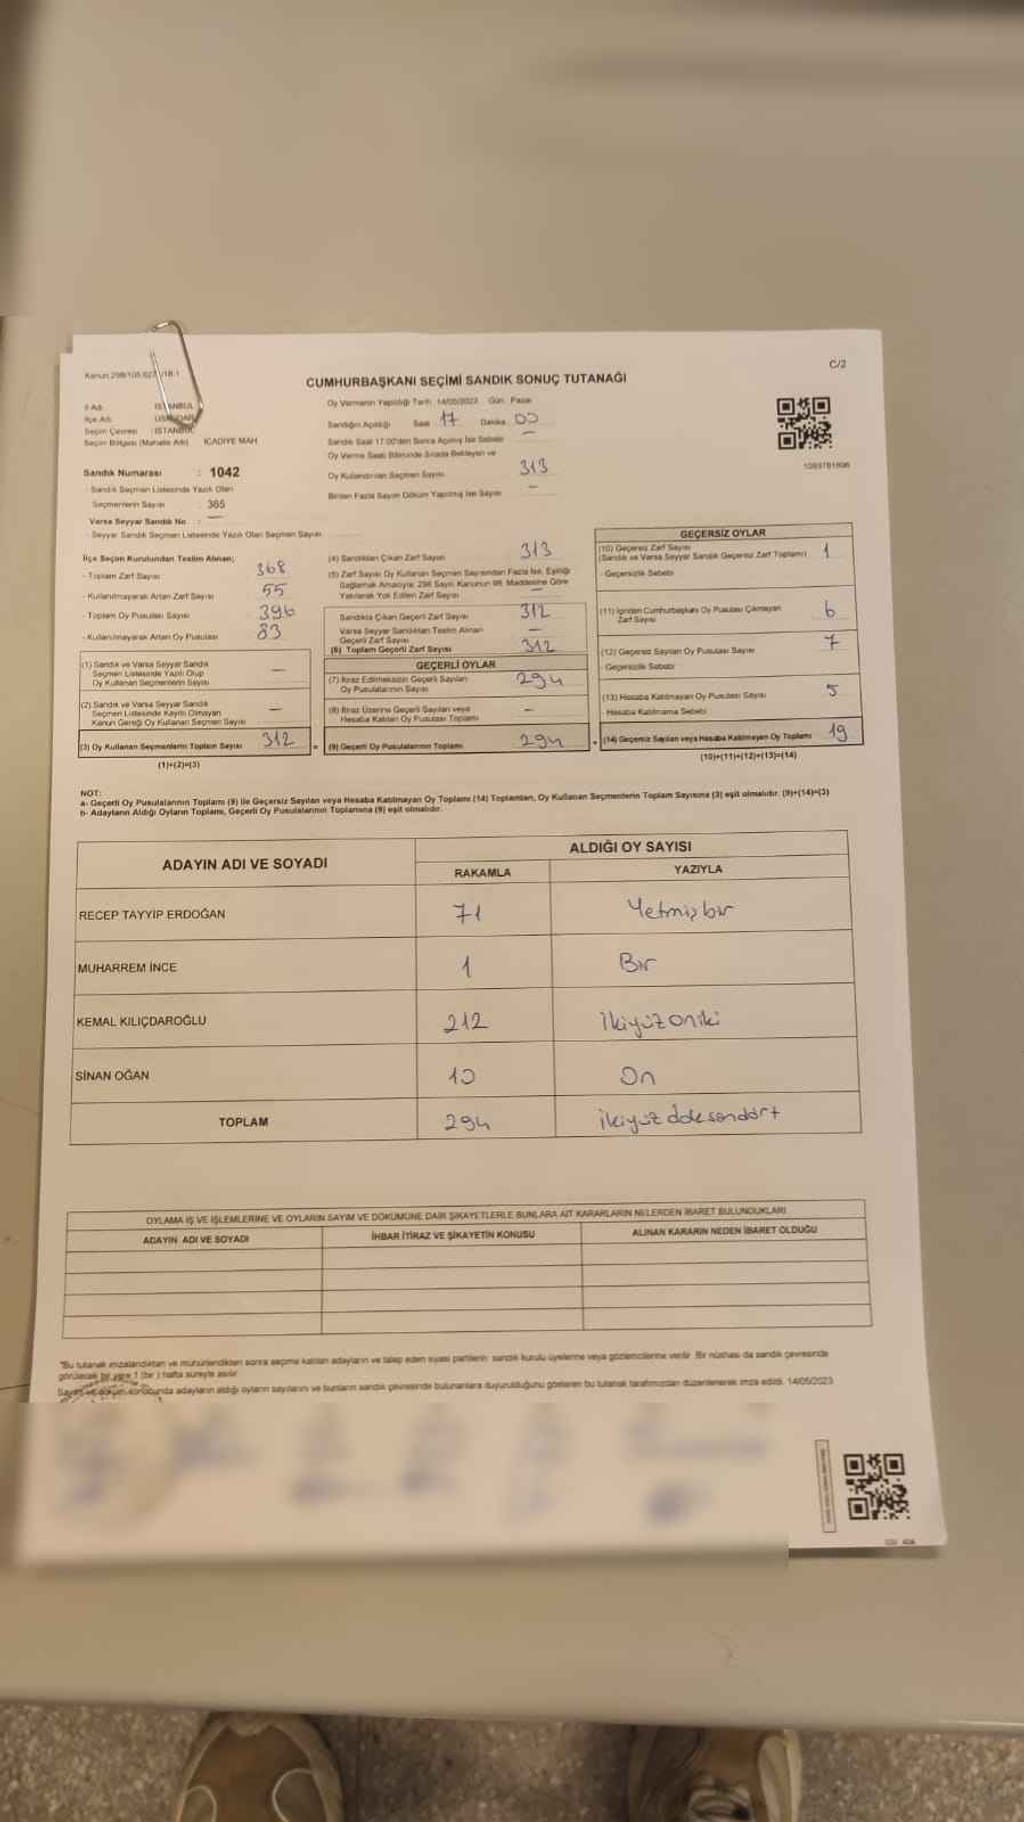 C/2
CUMHURBAŞKANI SEÇİMİ SANDIK SONUÇ TUTANAĞI
İl Adı : İSTANBUL
İlçe Adı : ÜSKÜDAR
Seçim Çevresi : İSTANBUL
Seçim Bölgesi (Mahalle Adı) : ICADİYE MAH.
Sandık Numarası : 1042
Sandık Seçmen Listesinde Yazılı Olan
Seçmenlerin Sayısı : 365
Varsa Seyyar Sandık No :
Seyyar Sandık Seçmen Listesinde Yazılı Olan Seçmen Sayısı
Oy Vermenin Yapıldığı Tarih 14/05/2023 Gün Pazar
Sandığın Açıldığı Saat 17 Dakika 00
Sandık Saat 17:00'den Sonra Açılmış İse Sebebi —
Oy Verme Saati Bitiminde Sırada Bekleyen ve
Oy Kullandırılan Seçmen Sayısı 313
Birden Fazla Sayım Döküm Yapılmış İse Sayısı —
İlçe Seçim Kurulundan Teslim Alınan;
- Toplam Zarf Sayısı 368
- Kullanılmayarak Artan Zarf Sayısı 55
- Toplam Oy Pusulası Sayısı 396
- Kullanılmayarak Artan Oy Pusulası 83
(1) Sandık ve Varsa Seyyar Sandık
Seçmen Listesinde Yazılı Olup
Oy Kullanan Seçmenlerin Sayısı —
(2) Sandık ve Varsa Seyyar Sandık
Seçmen Listesinde Kayıtlı Olmayan
Kanun Gereği Oy Kullanan Seçmen Sayısı —
(3) Oy Kullanan Seçmenlerin Toplam Sayısı 312
(1)+(2)=(3)
(4) Sandıktan Çıkan Zarf Sayısı 313
(5) Zarf Sayısı Oy Kullanan Seçmen Sayısından Fazla İse, Eşitliği
Sağlamak Amacıyla; 298 Sayılı Kanunun 98. Maddesine Göre
Yakılarak Yok Edilen Zarf Sayısı —
Sandıkta Çıkan Geçerli Zarf Sayısı 312
Varsa Seyyar Sandıktan Teslim Alınan
Geçerli Zarf Sayısı —
(6) Toplam Geçerli Zarf Sayısı 312
GEÇERLİ OYLAR
(7) İtiraz Edilmeksizin Geçerli Sayılan
Oy Pusulalarının Sayısı 294
(8) İtiraz Üzerine Geçerli Sayılan veya
Hesaba Katılan Oy Pusulası Toplamı —
= (9) Geçerli Oy Pusulalarının Toplamı 294
GEÇERSİZ OYLAR
(10) Geçersiz Zarf Sayısı
(Sandık ve Varsa Seyyar Sandık Geçersiz Zarf Toplamı) 1
- Geçersizlik Sebebi
(11) İçinden Cumhurbaşkanı Oy Pusulası Çıkmayan
Zarf Sayısı 6
(12) Geçersiz Sayılan Oy Pusulası Sayısı 7
- Geçersizlik Sebebi
(13) Hesaba Katılmayan Oy Pusulası Sayısı 5
- Hesaba Katılmama Sebebi
+ (14) Geçersiz Sayılan veya Hesaba Katılmayan Oy Toplamı 19
(10)+(11)+(12)+(13)=(14)
NOT:
a- Geçerli Oy Pusulalarının Toplamı (9) ile Geçersiz Sayılan veya Hesaba Katılmayan Oy Toplamı (14) Toplamları, Oy Kullanan Seçmenlerin Toplam Sayısına (3) eşit olmalıdır. (9)+(14)=(3)
b- Adayların Aldığı Oyların Toplamı, Geçerli Oy Pusulalarının Toplamına (9) eşit olmalıdır.
ADAYIN ADI VE SOYADI ALDIĞI OY SAYISI
RAKAMLA YAZIYLA
RECEP TAYYİP ERDOĞAN 71 Yetmişbir
MUHARREM İNCE 1 Bir
KEMAL KILIÇDAROĞLU 212 İkiyüzoniki
SİNAN OĞAN 10 On
TOPLAM 294 ikiyüz doksandört
OYLAMA İŞ VE İŞLEMLERİNE VE OYLARIN SAYIM VE DÖKÜMÜNE DAİR ŞİKAYETLERLE BUNLARA AİT KARARLARIN NELERDEN İBARET BULUNDUKLARI
ADAYIN ADI VE SOYADI İHBAR İTİRAZ VE ŞİKAYETİN KONUSU ALINAN KARARIN NEDEN İBARET OLDUĞU
"Bu tutanak imzalandıktan ve mühürlendikten sonra seçime katılan adayların ve talep eden siyasi partilerin sandık kurulu üyelerine veya gözlemcilerine verilir. Bir nüshası da sandık çevresinde
görülecek bir yere 1 (bir) hafta süreyle asılır.
Sayım ve döküm sonucunda adayların aldığı oyların sayılarını ve bunların sandık çevresinde bulunanlara duyurulduğunu gösteren bu tutanak tarafımızdan düzenlenerek imza edildi. 14/05/2023